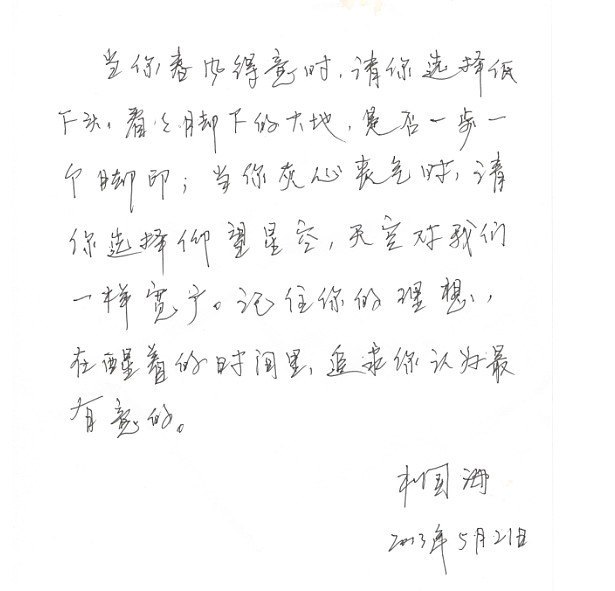 当你春风得意时，请你选择低
下头，看么脚下的大地，是否一步一
个脚印；当你灰心丧气时，请
你选择仰望星空，天空对我们
一样宽广。记住你的理想，
在醒着的时间里，追求你认为最
有意的。
国海
2013年5月21日